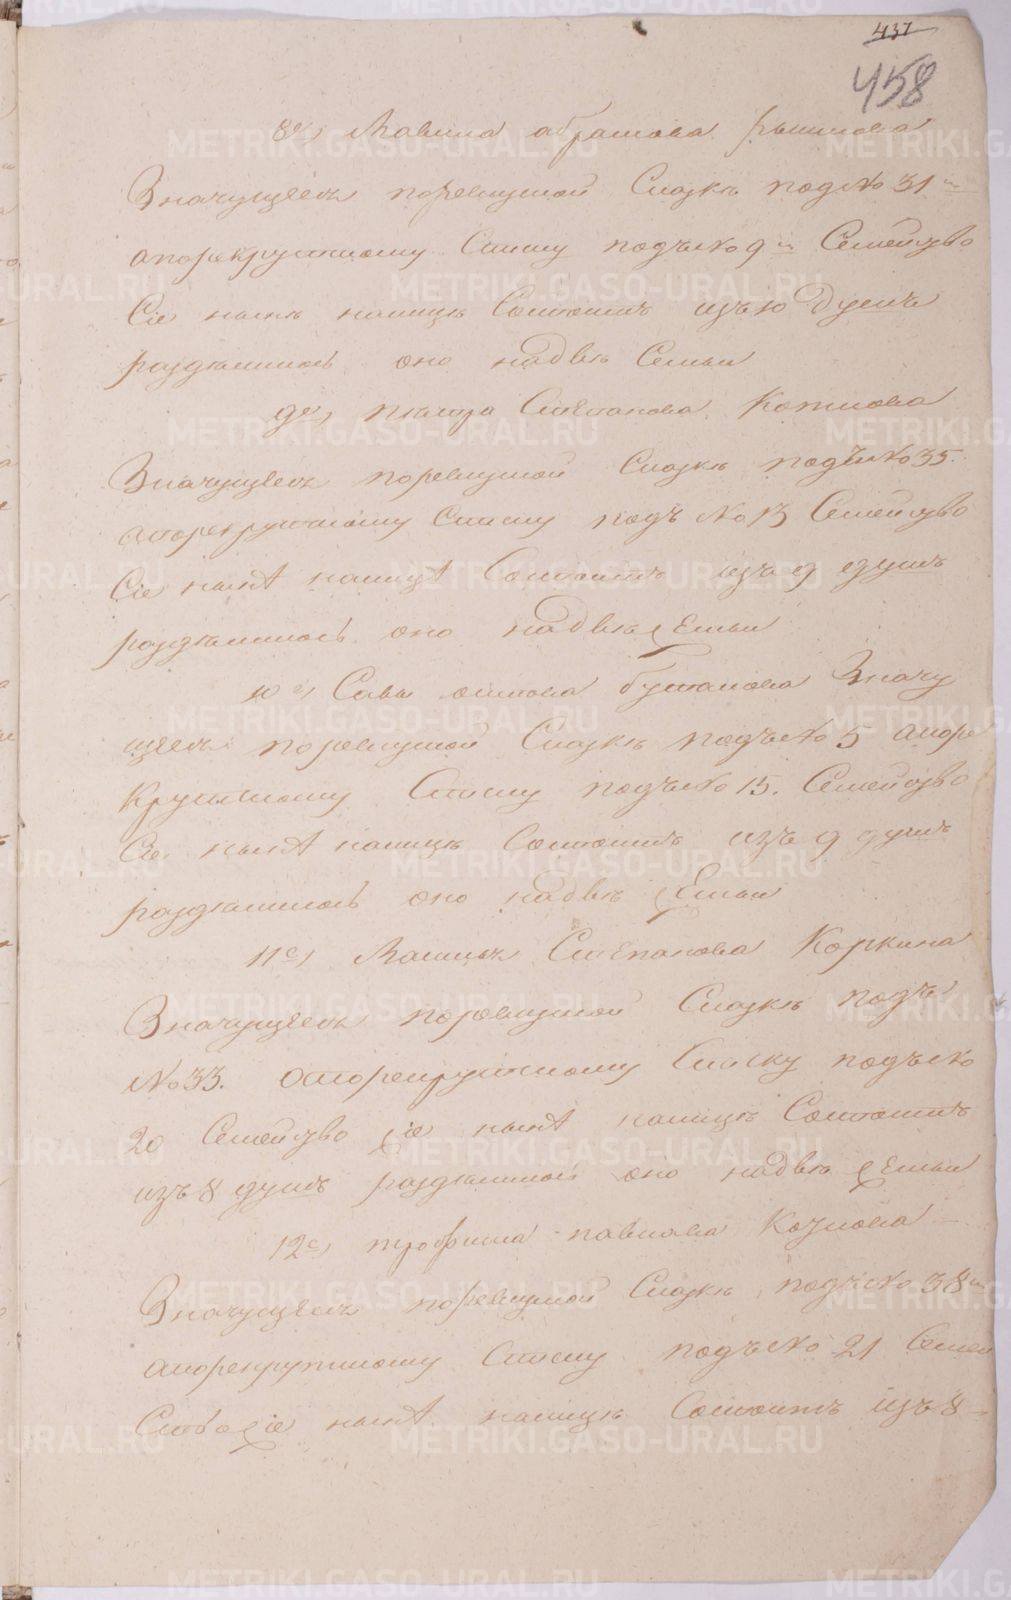 437
458
8е) Мавила абрамова рышкова
Значущеся поревизской Сказкѣ под№ 31м
апорекрутскому Списку подъ№ 9м Семейство
Сiе нынѣ налицѣ Состоитъ изъ 10 душъ
раздѣлилось оно надвѣ Семьи
9е) петра Степанова Котлова
Значущеся поревизской Сказкѣ подъ№ 35.
апорекрутскому Списку подъ №13 Семейство
Сiе нынѣ налицѣ Состоитъ изъ 9 душъ
раздѣлилось оно надвѣ Семьи
10е) Савы осипова буталова Значу
щеся поревизской Сказкѣ подъ№ 5 апоре
Крутскому Списку подъ№ 15. Семейство
Сiе нынѣ налицѣ Состоитъ изъ 9 душъ
раздѣлилось оно надвѣ Семьи
11е) Степанова Коркина
Значущеся поревизской Сказкѣ подъ
№33. апорекрутскому Списку подъ№
20 Семейство сiе нынѣ налицѣ Состоитъ
изъ 8 душъ раздѣлилось оно надвѣ Семьи
12е) трофима павлова Козлова
Значущеся поревизской Сказкѣ подъ№ 38м
апорекрутскому Списку подъ№ 21 Семей
Ство сiе нынѣ налицѣ Состоитъ изъ 8
METRIKI.GASO-URAL.RU